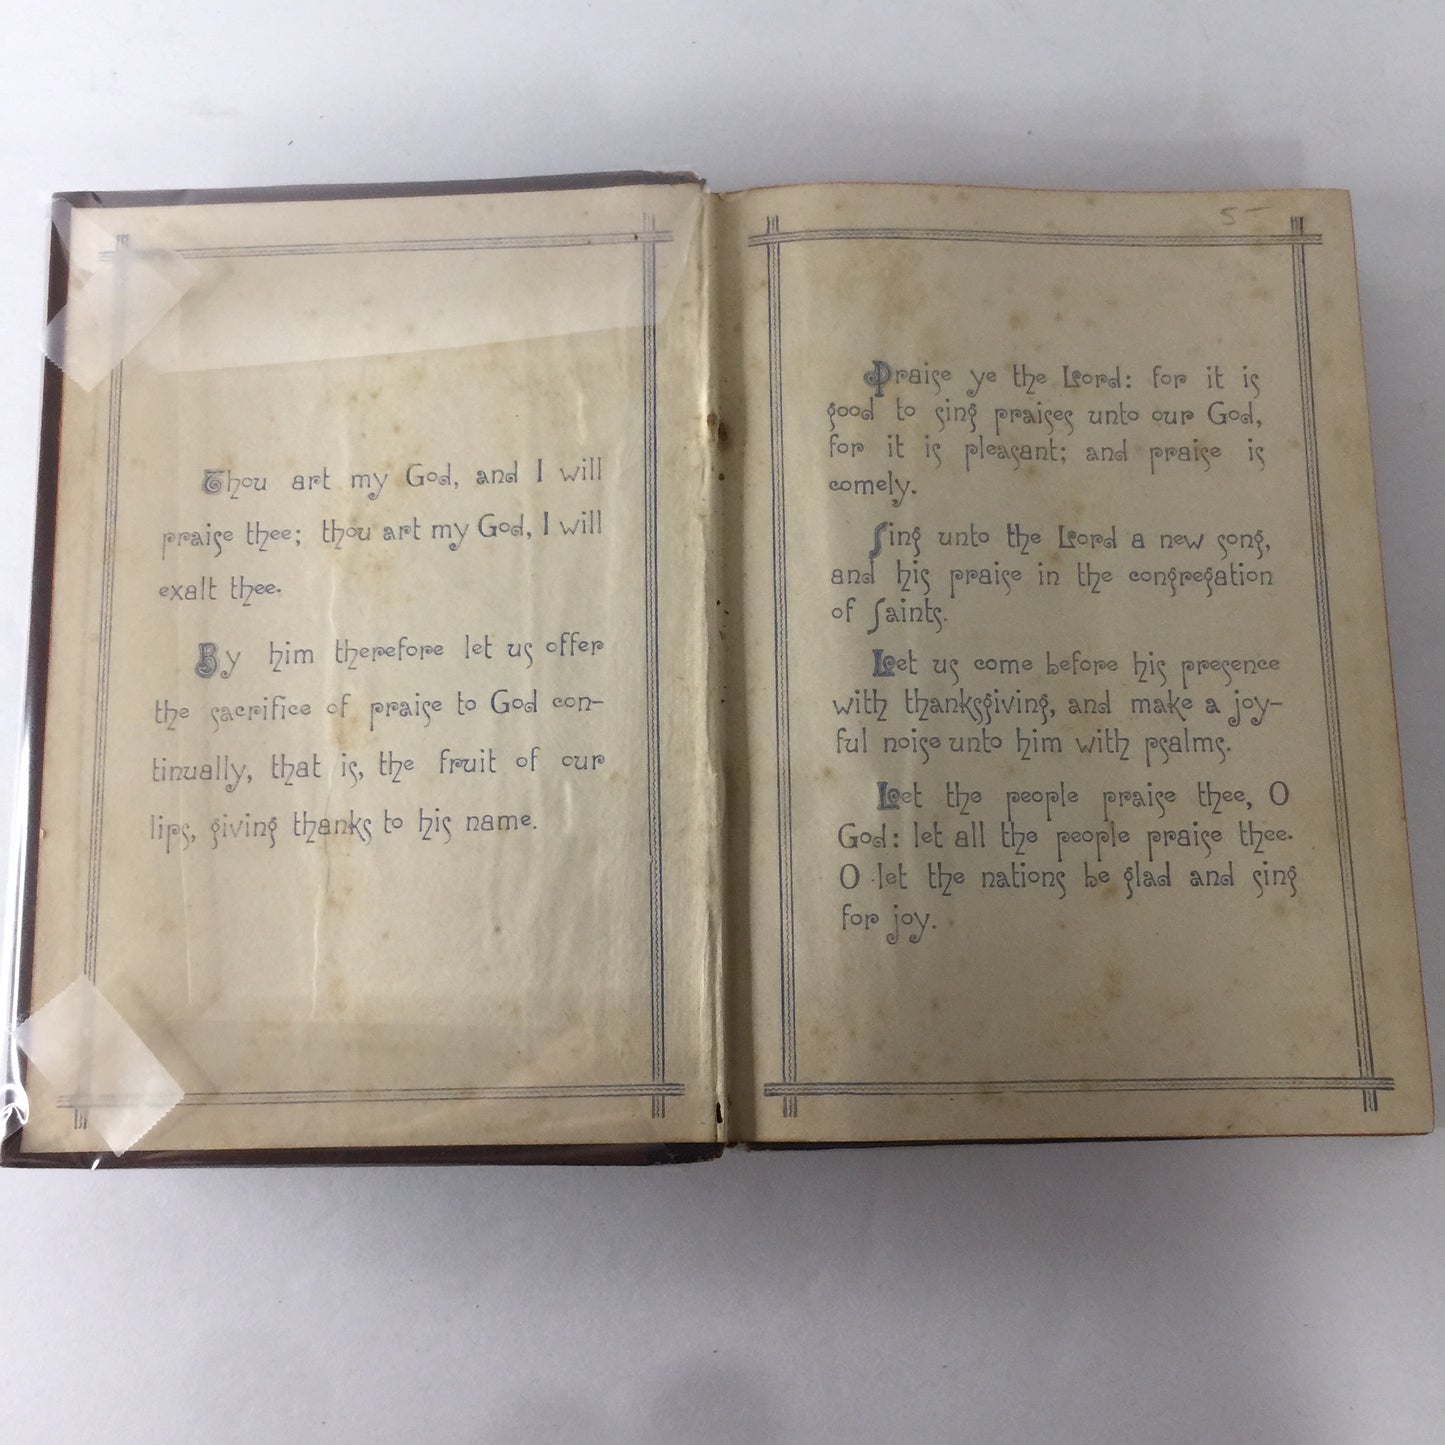 Thou art my God, and I will
praise thee; thou art my God, I will
exalt thee.
By him therefore let us offer
the sacrifice of praise to God con-
tinually, that is, the fruit of our
lips, giving thanks to his name.
5-
Praise ye the Lord: for it is
good to sing praises unto our God,
for it is pleasant; and praise is
comely.
Sing unto the Lord a new song,
and his praise in the congregation
of Saints.
Let us come before his presence
with thanksgiving, and make a joy-
ful noise unto him with psalms.
Let the people praise thee, O
God: let all the people praise thee.
O let the nations be glad and sing
for joy.